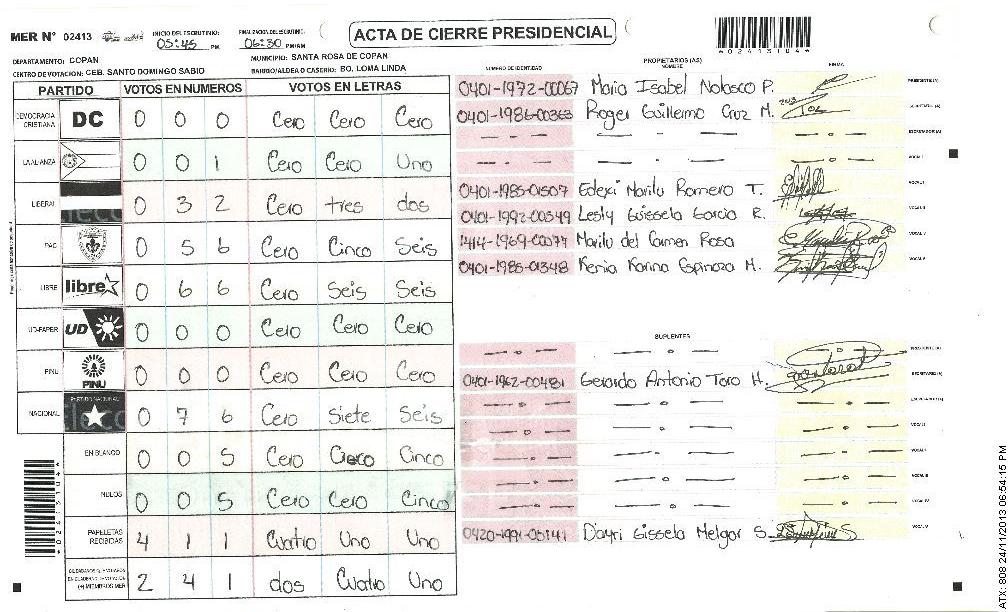 MER N° 02413
INICIO DEL ESCRUTINIO: 05:45 PM
FINALIZACION DEL ESCRUTINIO: 06:30 PM/AM
ACTA DE CIERRE PRESIDENCIAL
*02413104*
DEPARTAMENTO: COPAN
MUNICIPIO: SANTA ROSA DE COPAN
CENTRO DE VOTACION: CEB. SANTO DOMINGO SABIO
BARRIO/ALDEA O CASERIO: BO. LOMA LINDA
PARTIDO VOTOS EN NUMEROS VOTOS EN LETRAS
DEMOCRACIA CRISTIANA DC 0 0 0 Cero Cero Cero
LA ALIANZA 0 0 1 Cero Cero Uno
LIBERAL 0 3 2 Cero tres dos
PAC 0 5 6 Cero Cinco Seis
LIBRE libre 0 6 6 Cero Seis Seis
UD-FAPER UD 0 0 0 Cero Cero Cero
PINU PINU 0 0 0 Cero Cero Cero
NACIONAL PARTIDO NACIONAL 0 7 6 Cero Siete Seis
EN BLANCO 0 0 5 Cero Cero Cinco
NULOS 0 0 5 Cero Cero Cinco
PAPELETAS RECIBIDAS 4 1 1 Cuatro Uno Uno
CIUDADANOS QUE VOTARON EN CUADERNO DE VOTACION (+) MIEMBROS MER 2 4 1 dos Cuatro Uno
*02413104*
PROPIETARIOS (AS)
NUMERO DE IDENTIDAD NOMBRE FIRMA
0401-1972-00067 Maria Isabel Nolasco P. PRESIDENTE (A)
0401-1986-00363 Roger Guillermo Cruz M. SECRETARIO (A)
ESCRUTADOR (A)
VOCAL I
0401-1985-01507 Edexi Marilu Romero T. VOCAL II
0401-1992-00549 Lesly Guissela Garcia R. VOCAL III
1414-1969-00077 Marilu del Carmen Rosa VOCAL IV
0401-1985-01348 Kenia Karina Espinoza M. VOCAL V
SUPLENTES
PRESIDENTE (A)
0401-1962-00481 Gerardo Antonio Toro H. SECRETARIO (A)
ESCRUTADOR (A)
VOCAL I
VOCAL II
VOCAL III
VOCAL IV
0420-1991-05141 Dayri Gissela Melgar S. VOCAL V
ATX: 808 24/11/2013 06:54:15 PM